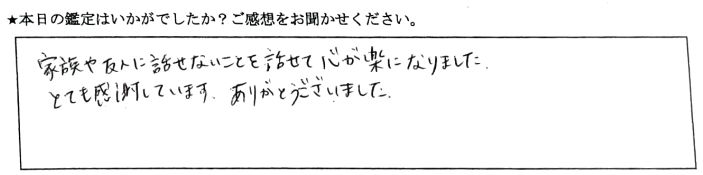 ★本日の鑑定はいかがでしたか？ご感想をお聞かせください。
家族や友人に話せないことを話せて心が楽になりました.
とても感謝しています. ありがとうございました.